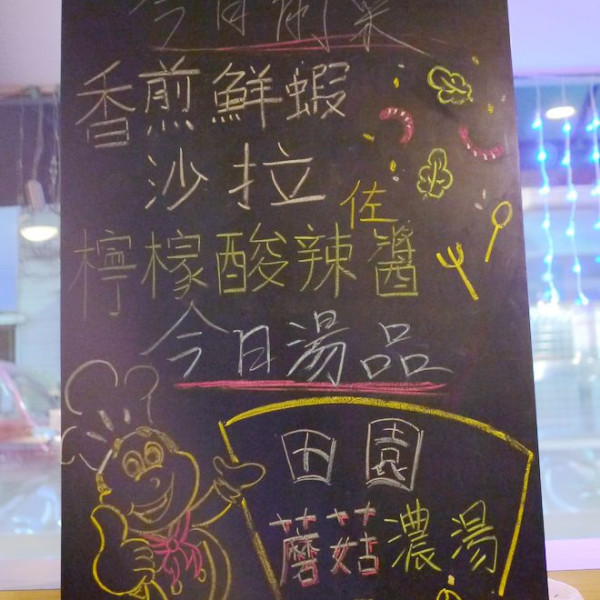 今日前菜
香煎鮮蝦
沙拉
佐
檸檬酸辣醬
今日湯品
田園
蘑菇濃湯